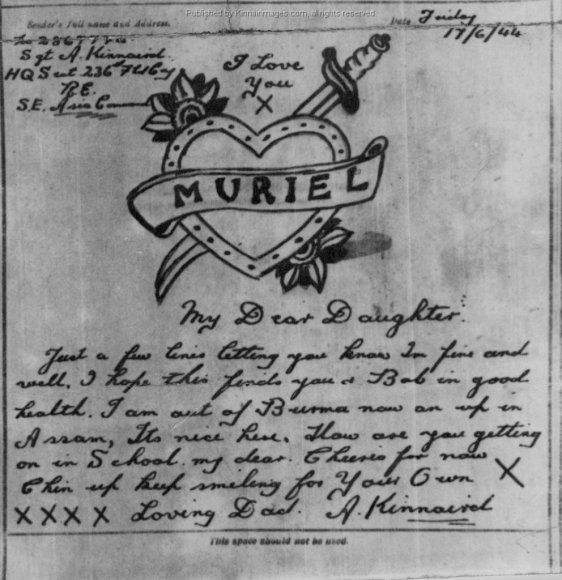 Published by Kinnairdimages.com, all rights reserved
Sender's full name and Address.
Date Friday
17/6/44
Sgt A. Kinnaird.
HQ Sect 236 Fld Coy
R.E.
S.E. Asia Command
I Love
You
X
MURIEL
My Dear Daughter.
Just a few lines letting you know Im fine and
well. I hope this finds you & Bob in good
health. I am out of Burma now an up in
Assam, Its nice here. How are you getting
on in School. my dear. Cheerio for now
Chin up keep smiling for Your Own X
XXXX Loving Dad. A. Kinnaird
This space should not be used.